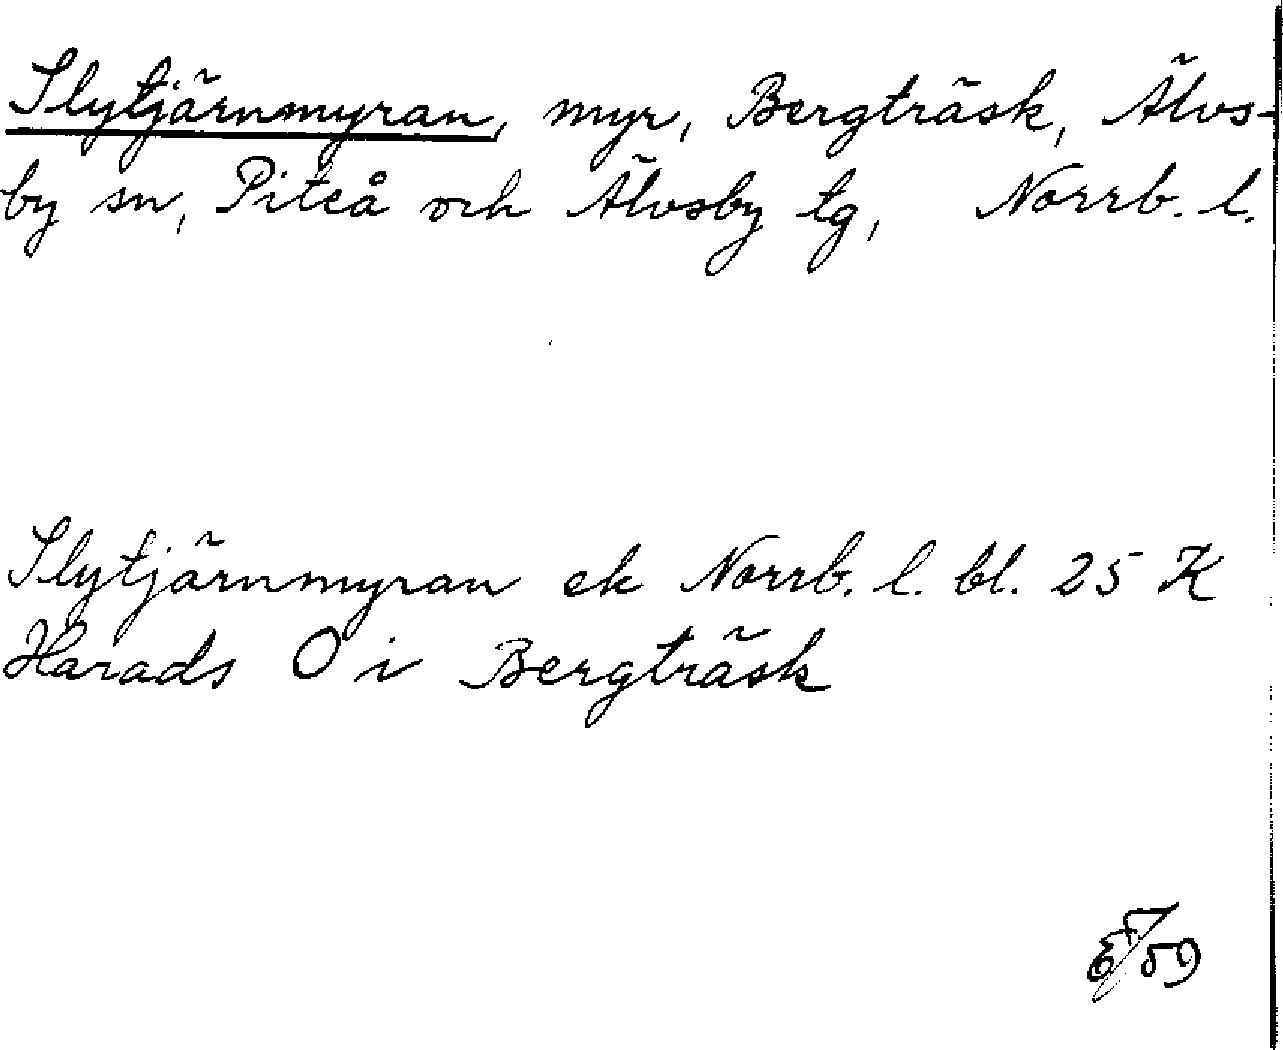 Slytjärnmyran, myr, Bergträsk, Älvs-
by sn, Piteå och Älvsby tg, Norrb. l.
Slytjärnmyran ek Norrb. l. bl. 25 K
Harads O i Bergträsk